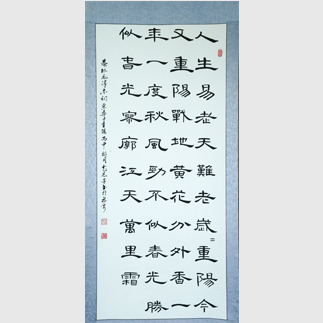 人生易老天難老歲〻重陽今
又重陽戰地黃花分外香一
年一度秋風勁不似春光勝
似春光寥廓江天萬里霜
毛澤東詞采桑子重陽丙申